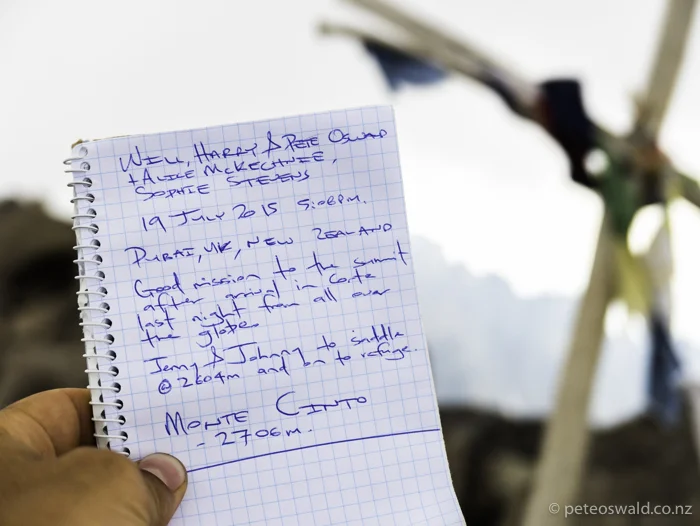 WILL, HARRY & PETE OSWALD
+ ALICE MCKECHNIE,
SOPHIE STEVENS
19 JULY 2015 5:08PM.
DUBAI, UK, NEW ZEALAND
Good mission to the summit
after arrival in Corte
last night from all over
the globe
Jenny & Johnny to saddle
@ 2604m and on to refuge.
MONTE CINTO
- 2706m.
© peteoswald.co.nz